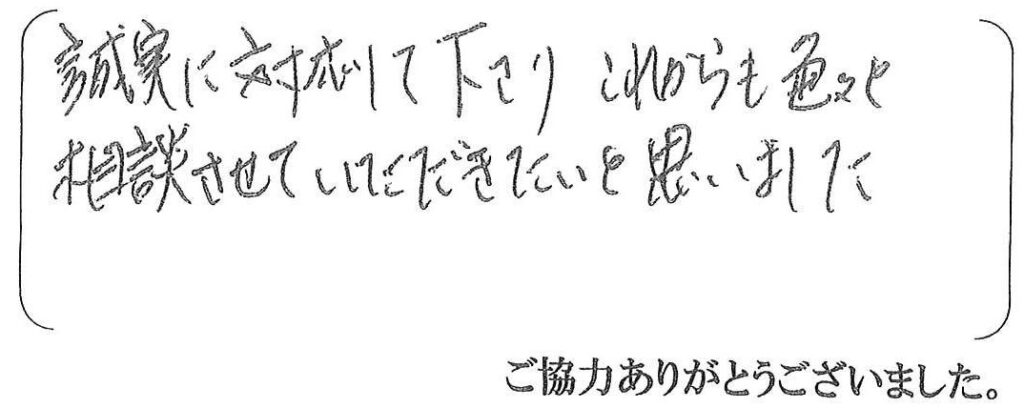 誠実に対応して下さり これからも色々と
相談させていただきたいと思いました
ご協力ありがとうございました。